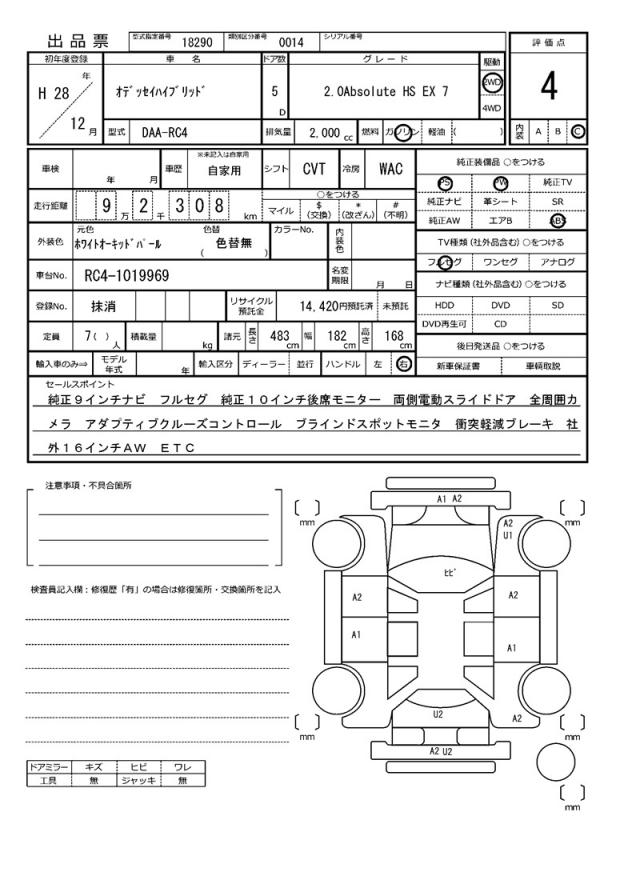 出品票 型式指定番号 18290 類別区分番号 0014 シリアル番号
評価点
4
内装 A B C
初年度登録 車名 ドア数 グレード 駆動
H 28 年 12 月 オデッセイハイブリッド 5 D 2.0Absolute HS EX 7 2WD 4WD
型式 DAA-RC4 排気量 2,000 cc 燃料 ガソリン 軽油 ( )
車検 年 月 車歴 ※未記入は自家用 自家用 シフト CVT 冷房 WAC
走行距離 9 万 2 千 3 0 8 km ○をつける マイル $ (交換) * (改ざん) # (不明)
外装色 元色 ホワイトオーキッドパール 色替 ( 色替無 ) カラーNo. 内装色
車台No. RC4-1019969 名変期限 月 日
登録No. 抹消 リサイクル預託金 14,420円預託済 未預託
定員 7( ) 人 積載量 kg 諸元 長さ 483 cm 幅 182 cm 高さ 168 cm
輸入車のみ⇒ モデル年式 年 輸入区分 ディーラー 並行 ハンドル 左 右
純正装備品 ○をつける
PS PW 純正TV
純正ナビ 革シート SR
純正AW エアB ABS
TV種類 (社外品含む) ○をつける
フルセグ ワンセグ アナログ
ナビ種類 (社外品含む) ○をつける
HDD DVD SD
DVD再生可 CD
後日発送品 ○をつける
新車保証書 車輌取説
セールスポイント
純正9インチナビ フルセグ 純正10インチ後席モニター 両側電動スライドドア 全周囲カ
メラ アダプティブクルーズコントロール ブラインドスポットモニタ 衝突軽減ブレーキ 社
外16インチAW ETC
注意事項・不具合箇所
検査員記入欄：修復歴「有」の場合は修復箇所・交換箇所を記入
ドアミラー キズ ヒビ ワレ
工具 無 ジャッキ 無
A1 A2
[ ] mm
[ ] mm
A2
U1
ヒビ
A2
A2
A1
A1
U2
A2
[ ] mm
[ ] mm
A2 U2
[ ] mm